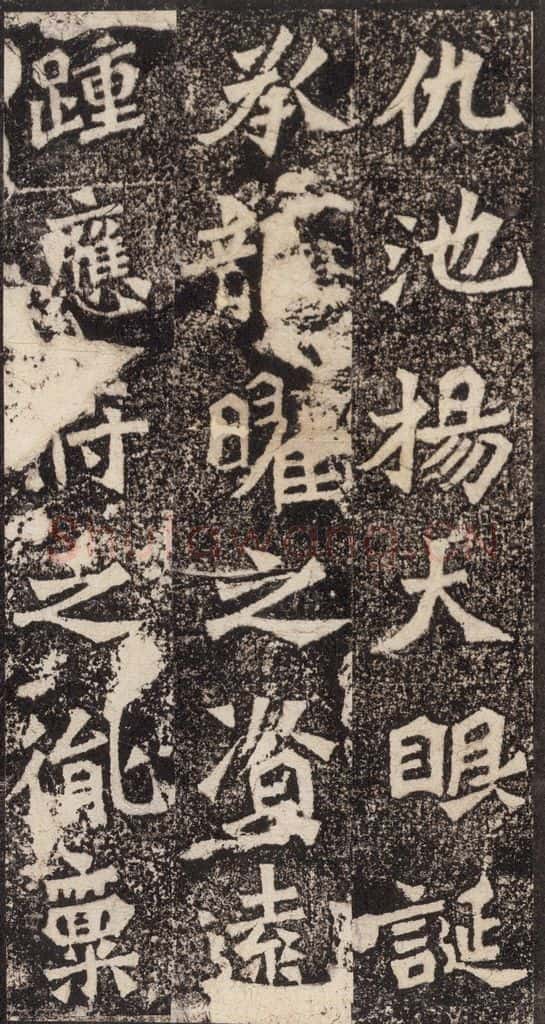 仇池揚大眼誕
承龍曜之資遠
踵應符之胤稟
Shufawang.CN